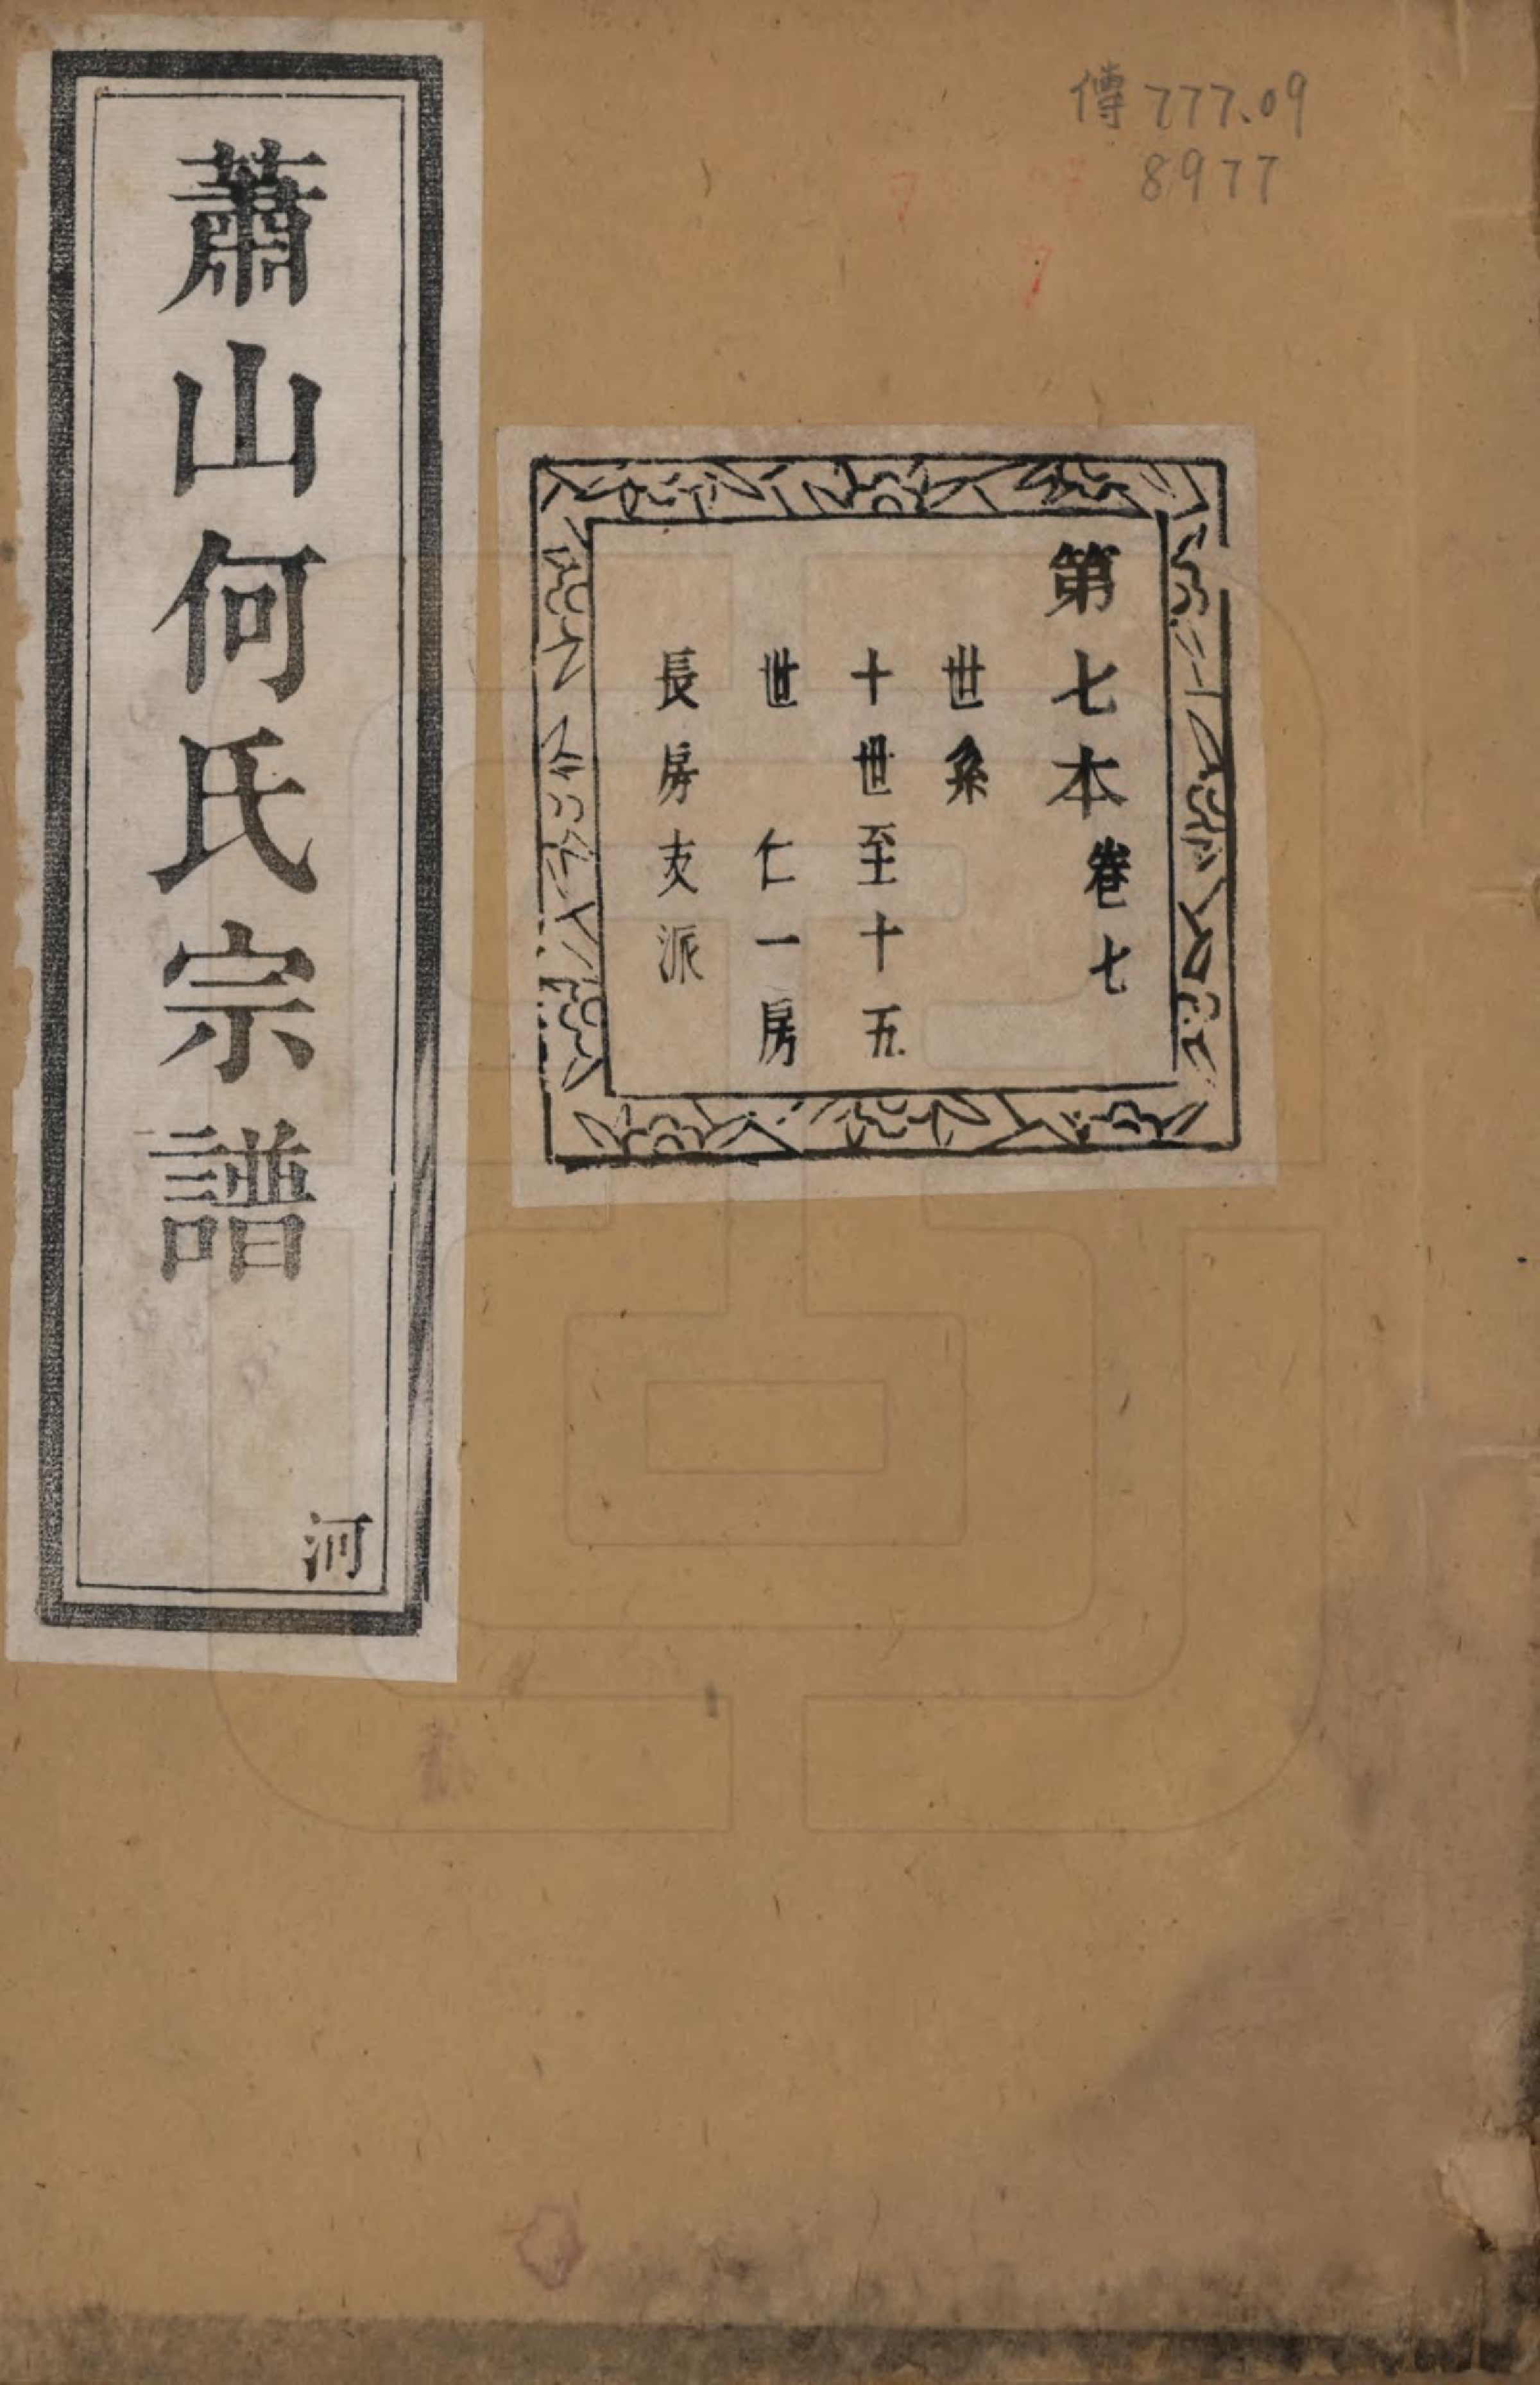 傳777.09
8977
第七本卷七
世系
十世至十五
世 仁一房
長房支派
蕭山何氏宗譜
河